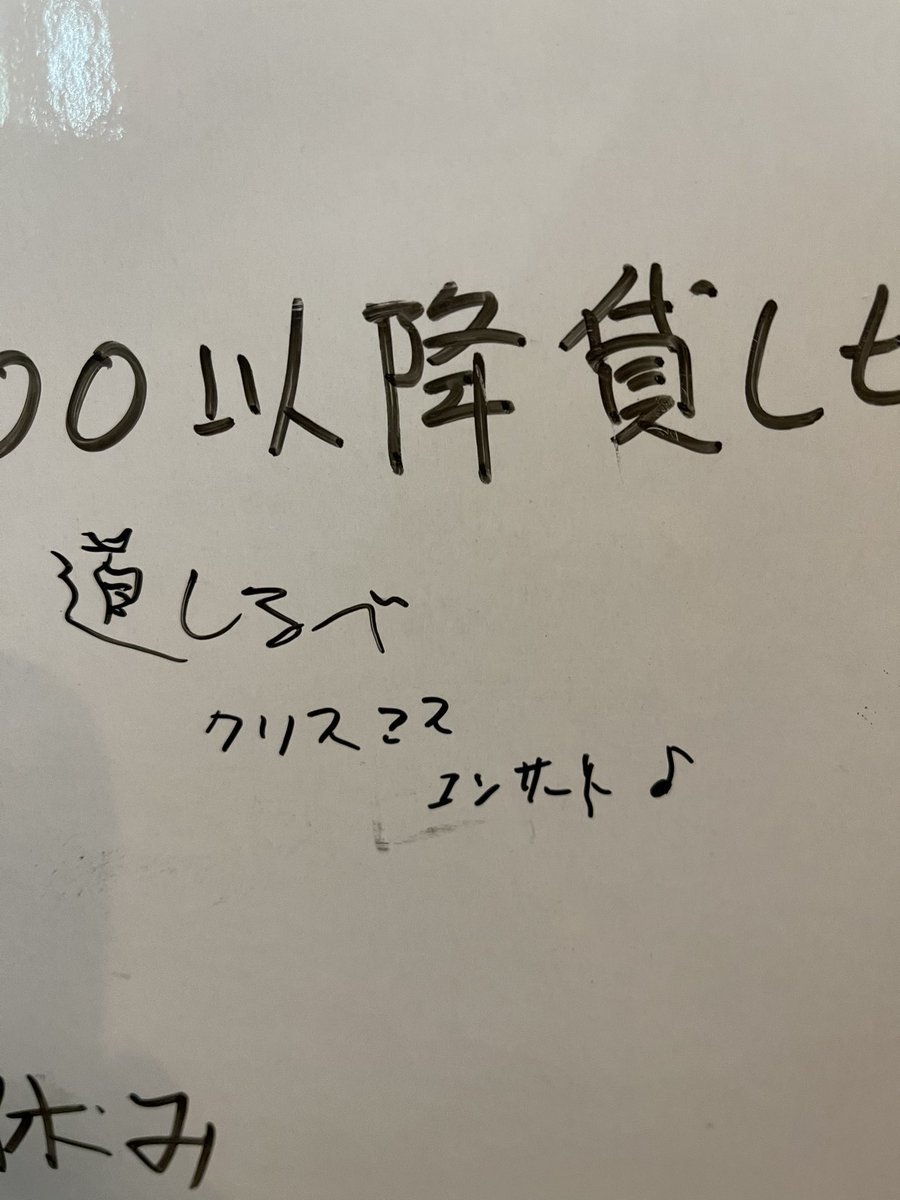 00以降貸しも
道しるべ
クリスマス
コンサート♪
休み